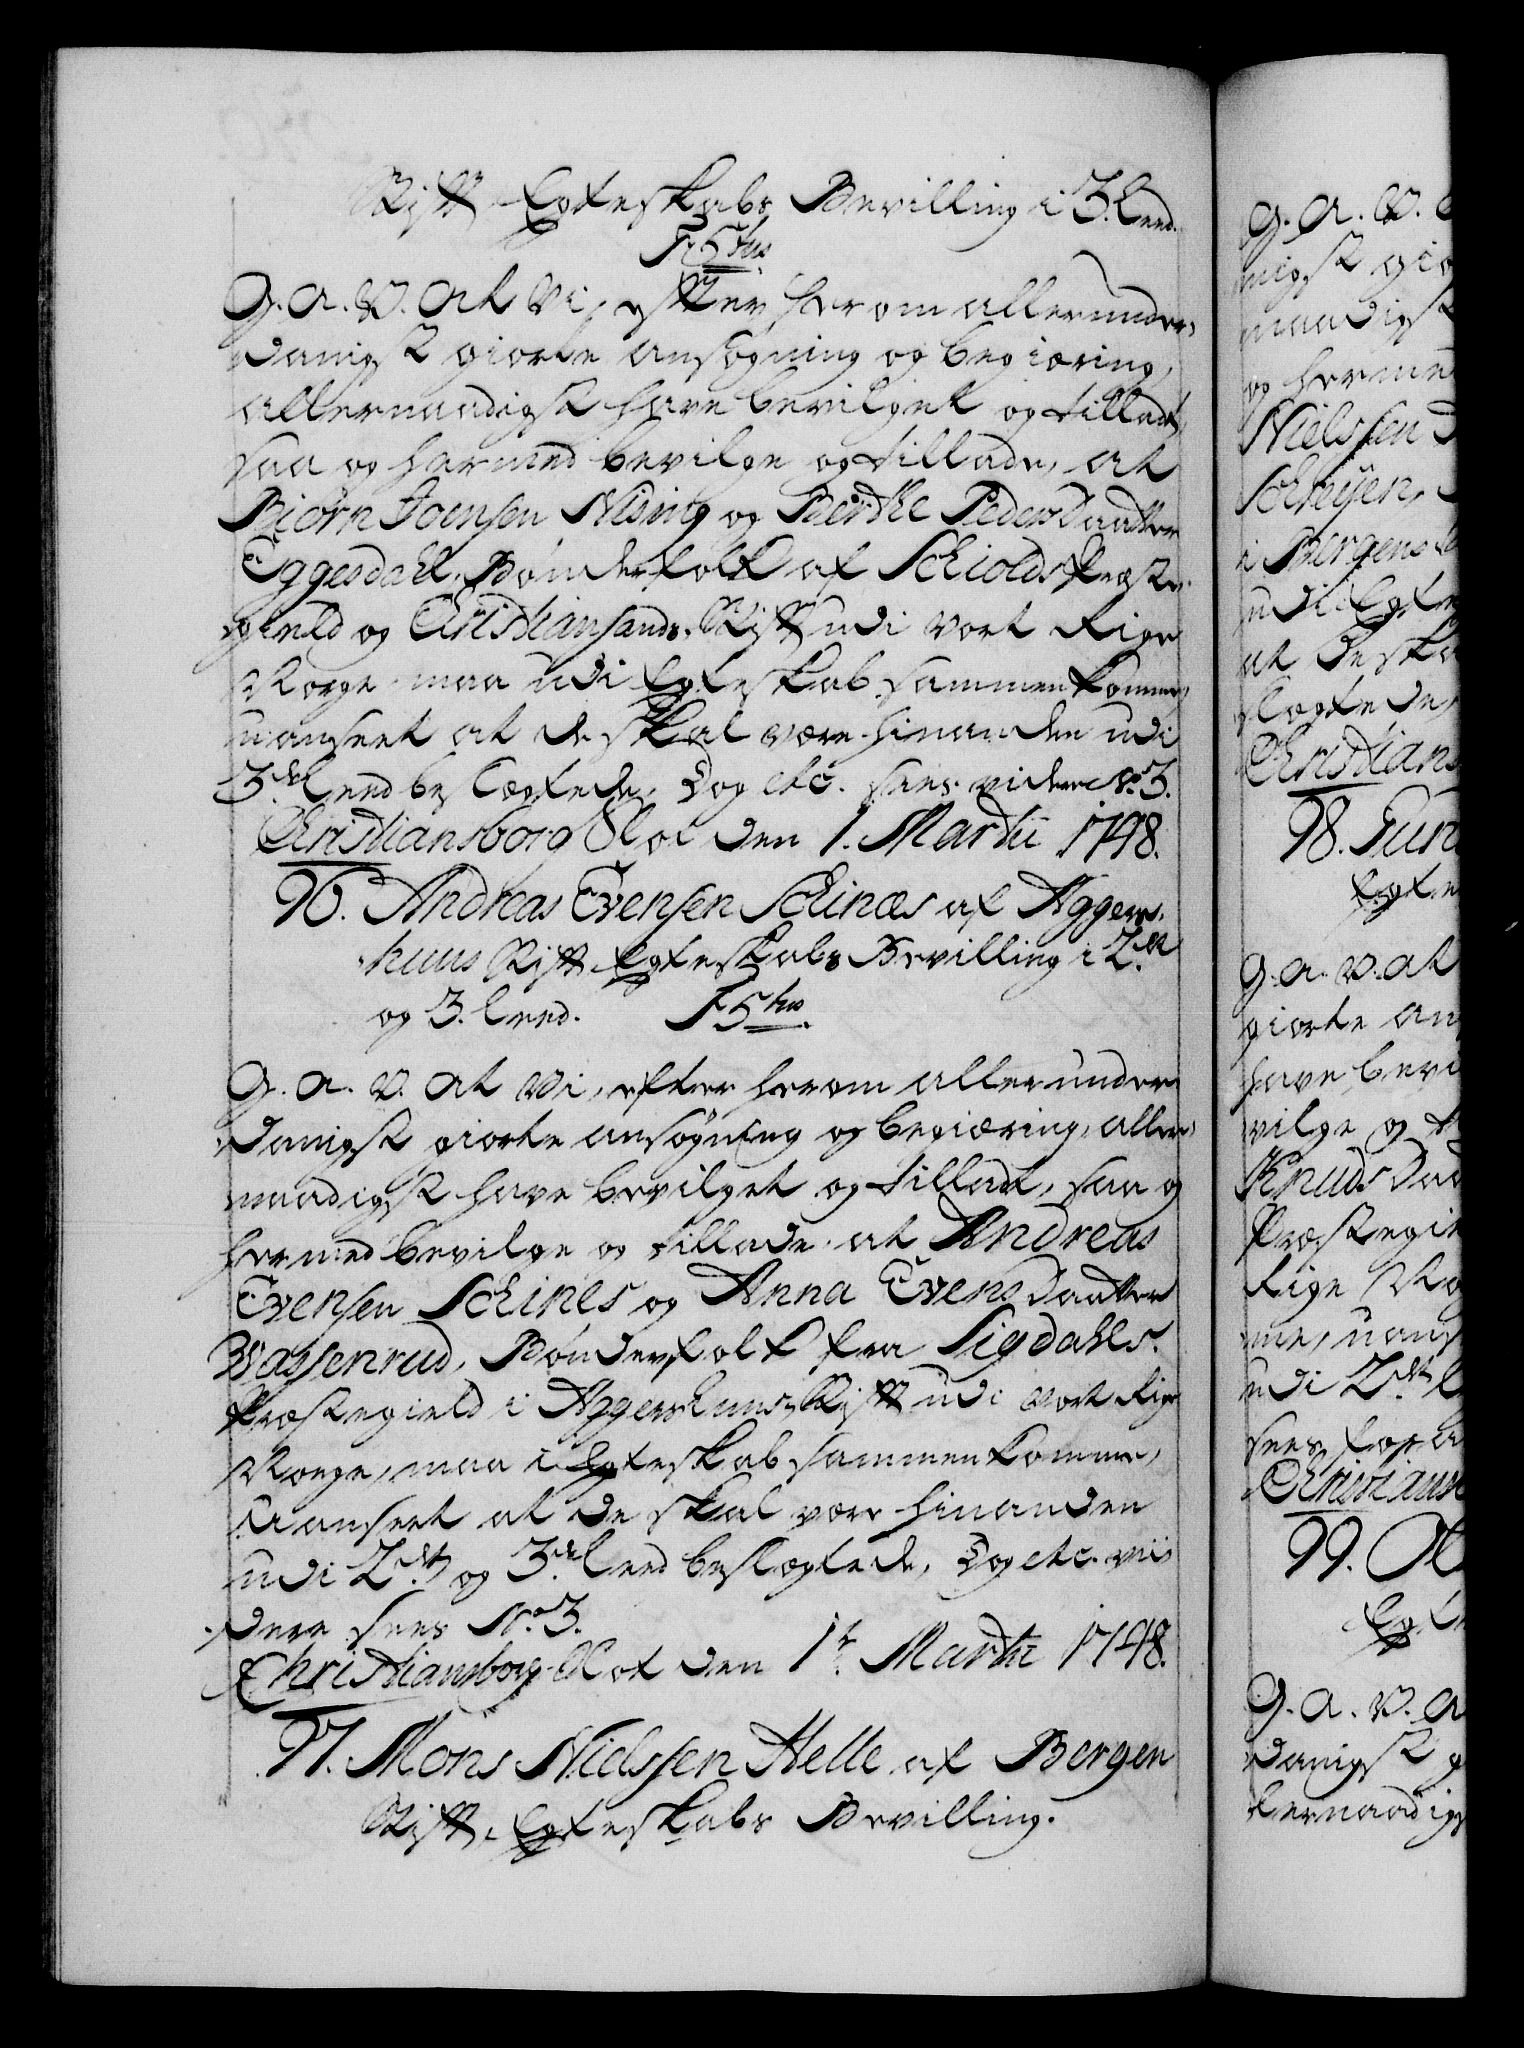 Stift Egteskabs Bevilling i 3. Leed.
G. A. V. at Vi, efter herom allerunder-
danigst giorte ansøgning og begiæring,
allernaadigst have bevilget og tilladt,
saa og hermed bevilge og tillade, at
Biørn Joensen Nising og Birthe Pedersdaatter
Eggesdahl, Bønderfolk af Schiolds Præste-
gield og Christiansands Stift udi vort Rige
Norge maa udi Egteskab sammenkomme,
uanseet at de skal være hinanden udi
3die Leed beslægtede. Dog etc. sees videre No. 3.
Christiansborg Slot den 1. Martii 1748.
96. Andreas Evensen Schinæs af Aggers-
huus Stift Egteskabs Bevilling i 2det
og 3. Leed.
G. A. V. at Vi, efter herom allerunder-
danigst giorte ansøgning og begiæring, aller-
naadigst have bevilget og tilladt, saa og
hermed bevilge og tillade at Andreas
Evensen Schines og Anna Evensdaatter
Wassenrud, Bønderfolk fra Sigdahls
Præstegield i Aggershuus Stift udi vort Rige
Norge, maa i Egteskab sammenkomme,
Uanseet at de skal være hinanden
udi 2det og 3die Leed beslægtede, Dog etc. vii-
dere sees No. 3.
Christiansborg Slot den 1t. Martii 1748.
97. Mons Nielssen Helle af Bergen
Stift, Egteskabs Bevilling.
G. A. V.
og hermed
Nielssen
i Bergens
at de skal
Christians
98.
G. A. V. at
giorte an
have bevi
vilge og
Knudsdaa
Præstegie
Rige No
udi 2det
99.
G. A. V. a
danigst g
lernaadigs